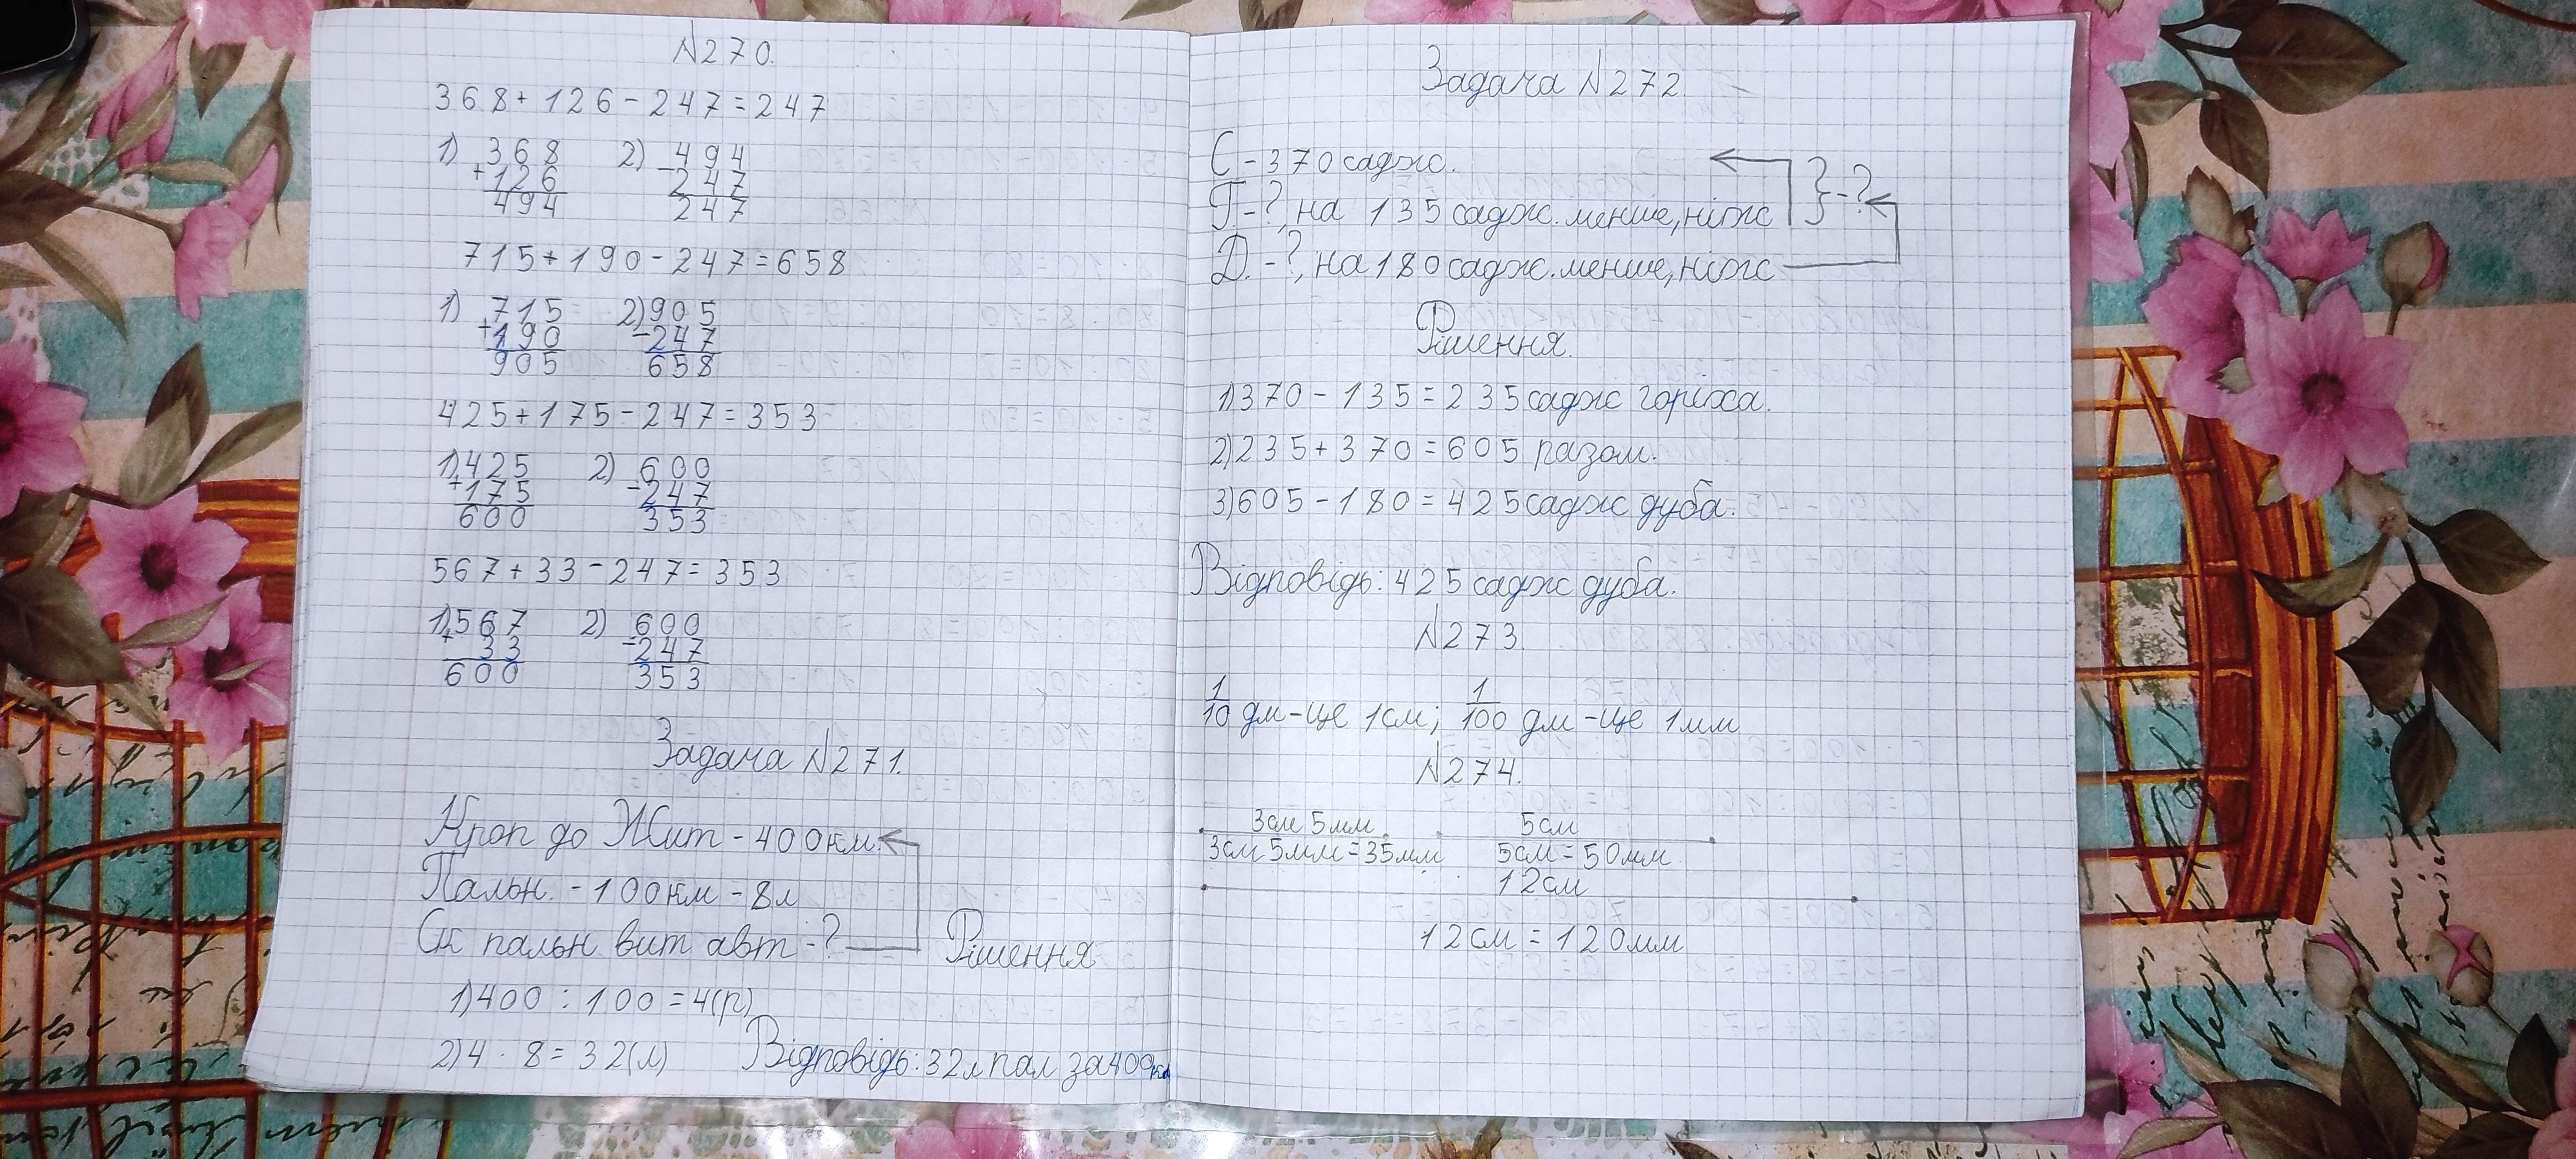 N270.
368+126-247=247
1) 368 2) 494
+126 -247
494 247
715+190-247=658
1) 715 2)905
+190 -247
905 658
425+175-247=353
1)425 2) 600
+175 -247
600 353
567+33-247=353
1)567 2) 600
+33 -247
600 353
Задача N271.
Кроп до Жит - 400км
Пальн. - 100км - 8л
Ск пальн вит авт -?
Рішення
1)400 : 100 = 4(р)
2)4 · 8 = 32(л) Відповідь: 32л пал за 400км
Задача N272.
С - 370 саджс.
Г. - ?, на 135 саджс. менше, ніжс } - ?
Д. - ?, на 180 саджс. менше, ніжс
Рішення.
1)370 - 135 = 235 саджс горіха.
2)235 + 370 = 605 разом.
3)605 - 180 = 425 саджс дуба.
Відповідь: 425 саджс дуба.
N273.
1/10 дм - це 1см; 1/100 дм - це 1мм
N274.
3см 5мм 5см
3см 5мм = 35мм 5см = 50мм
12см
12см = 120мм